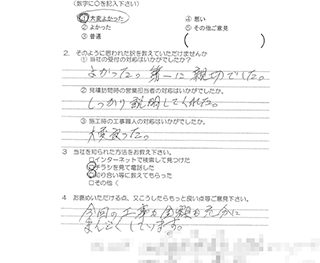 (数字に○を記入下さい)
①大変よかった ④悪い
②よかった ⑤その他ご意見
③普通 ( )
2. そのように思われた訳を教えていただけませんか
1) 当社の受付の対応はいかがでしたか?
よかった。第一に親切でした。
2) 見積訪問時の営業担当者の対応はいかがでしたか?
しっかり説明してくれた。
3) 施工時の工事職人の対応はいかがでしたか?
大変良かった。
3 当社を知られた方法をお教え下さい。
□インターネットで検索して見つけた
□チラシを見て電話した
□知り合い等に教えてもらった
□その他(
4 お褒めいただける点、又こうしたらもっと良い点等ご意見下さい。
今回の工事も金額も充分に
まんぞくしています。